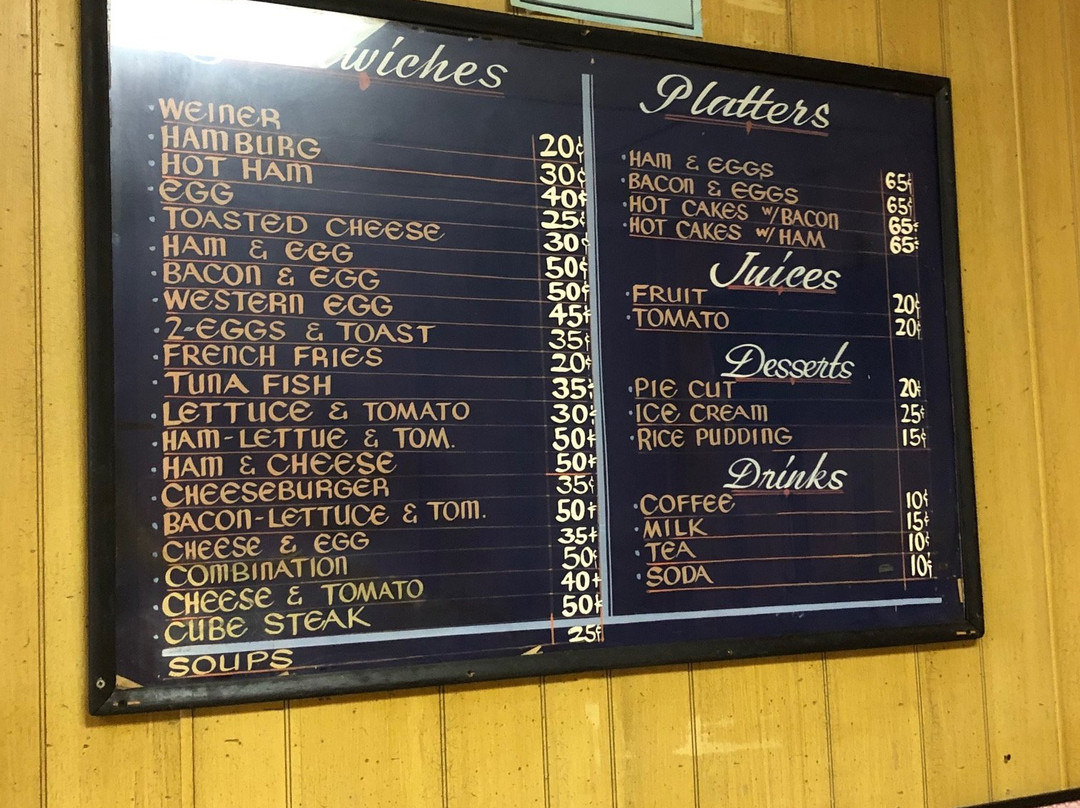 Sandwiches
WEINER 20¢
HAMBURG 30¢
HOT HAM 40¢
EGG 25¢
TOASTED CHEESE 30¢
HAM & EGG 50¢
BACON & EGG 50¢
WESTERN EGG 45¢
2-EGGS & TOAST 35¢
FRENCH FRIES 20¢
TUNA FISH 35¢
LETTUCE & TOMATO 30¢
HAM-LETTUE & TOM. 50¢
HAM & CHEESE 50¢
CHEESEBURGER 35¢
BACON-LETTUCE & TOM. 50¢
CHEESE & EGG 35¢
COMBINATION 50¢
CHEESE & TOMATO 40¢
CUBE STEAK 50¢
SOUPS 25¢
Platters
HAM & EGGS 65¢
BACON & EGGS 65¢
HOT CAKES w/BACON 65¢
HOT CAKES w/HAM 65¢
Juices
FRUIT 20¢
TOMATO 20¢
Desserts
PIE CUT 20¢
ICE CREAM 25¢
RICE PUDDING 15¢
Drinks
COFFEE 10¢
MILK 15¢
TEA 10¢
SODA 10¢